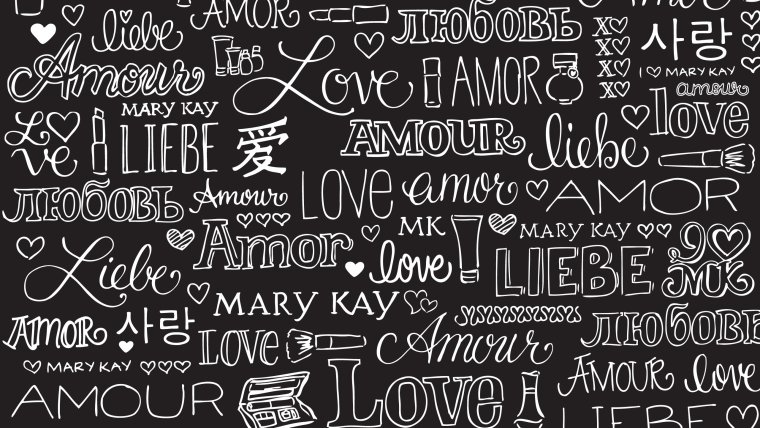 liebe
AMOR
ЛЮБОВЬ
XO
사랑
XO
XO
XO
Amour
Love
AMOR
I ♡ MARY KAY
amour
love
MARY KAY
Love
LIEBE
爱
AMOUR
liebe
ЛЮБОВЬ
Amour
LOVE
amor
AMOR
MK
MARY KAY
Amor
love
LIEBE
MK
Liebe
MARY KAY
AMOR
사랑
LOVE
Amour
ЛЮБОВЬ
MARY KAY
Love
AMOUR
love
AMOUR
LIEBE